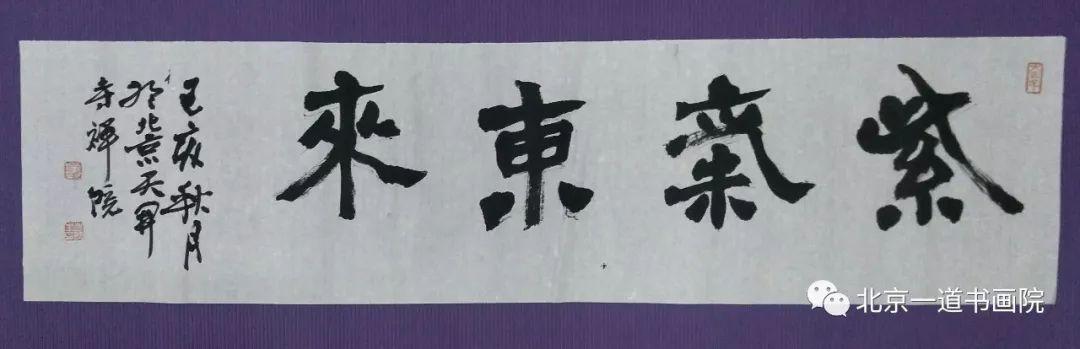 紫氣東來
己亥秋月
於北京天開
寺禅院
北京一道书画院